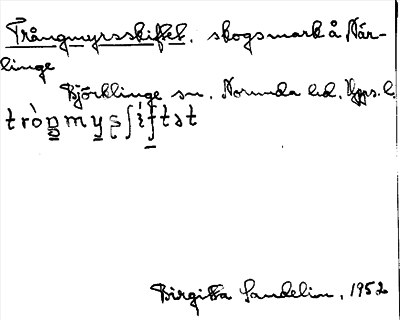 Trångmyrsskiftet, skogsmark å När-
linge
Björklinge sn. Norunda hd. Upps. l.
Birgitta Sandelin, 1952